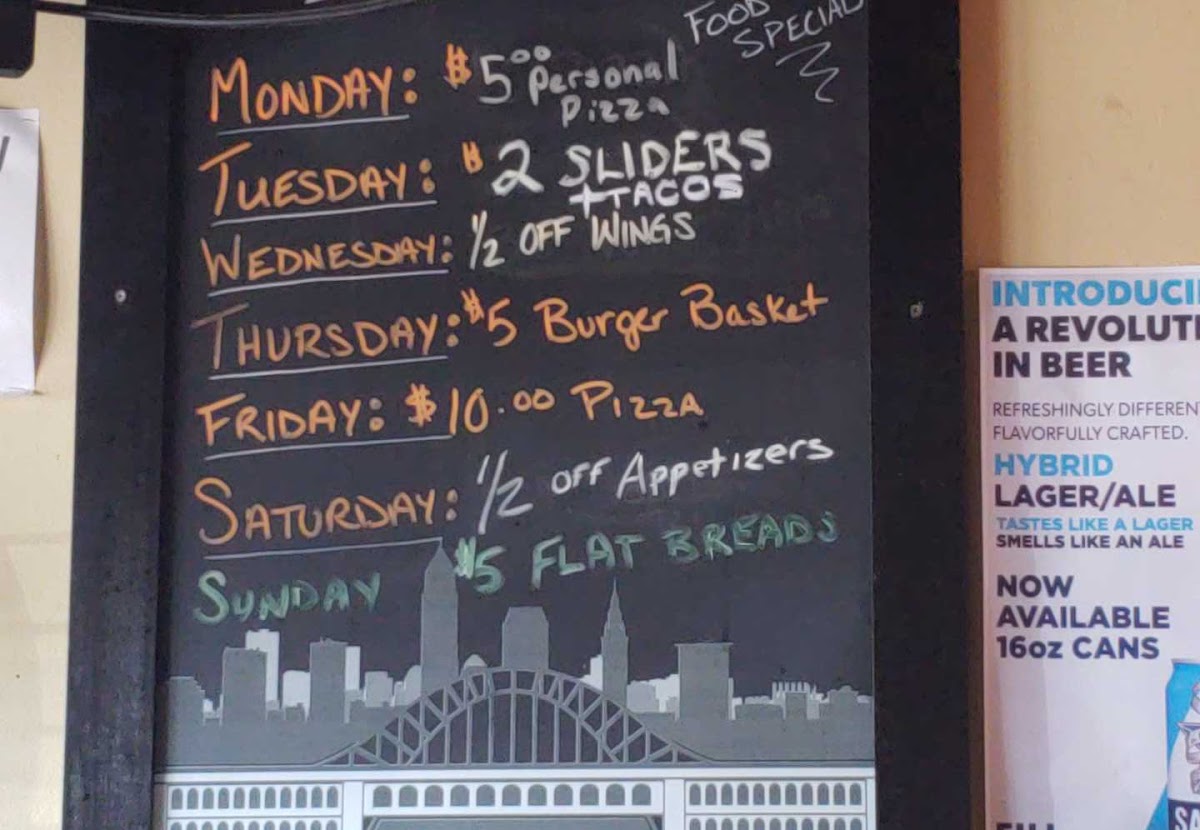 FOOD
SPECIAL
MONDAY: $5.00 Personal
Pizza
TUESDAY: $2 SLIDERS
+TACOS
WEDNESDAY: 1/2 OFF WINGS
THURSDAY: $5 Burger Basket
FRIDAY: $10.00 PIZZA
SATURDAY: 1/2 off Appetizers
SUNDAY $5 FLAT BREADS
INTRODUCI
A REVOLUTI
IN BEER
REFRESHINGLY DIFFEREN
FLAVORFULLY CRAFTED.
HYBRID
LAGER/ALE
TASTES LIKE A LAGER
SMELLS LIKE AN ALE
NOW
AVAILABLE
16oz CANS
SA